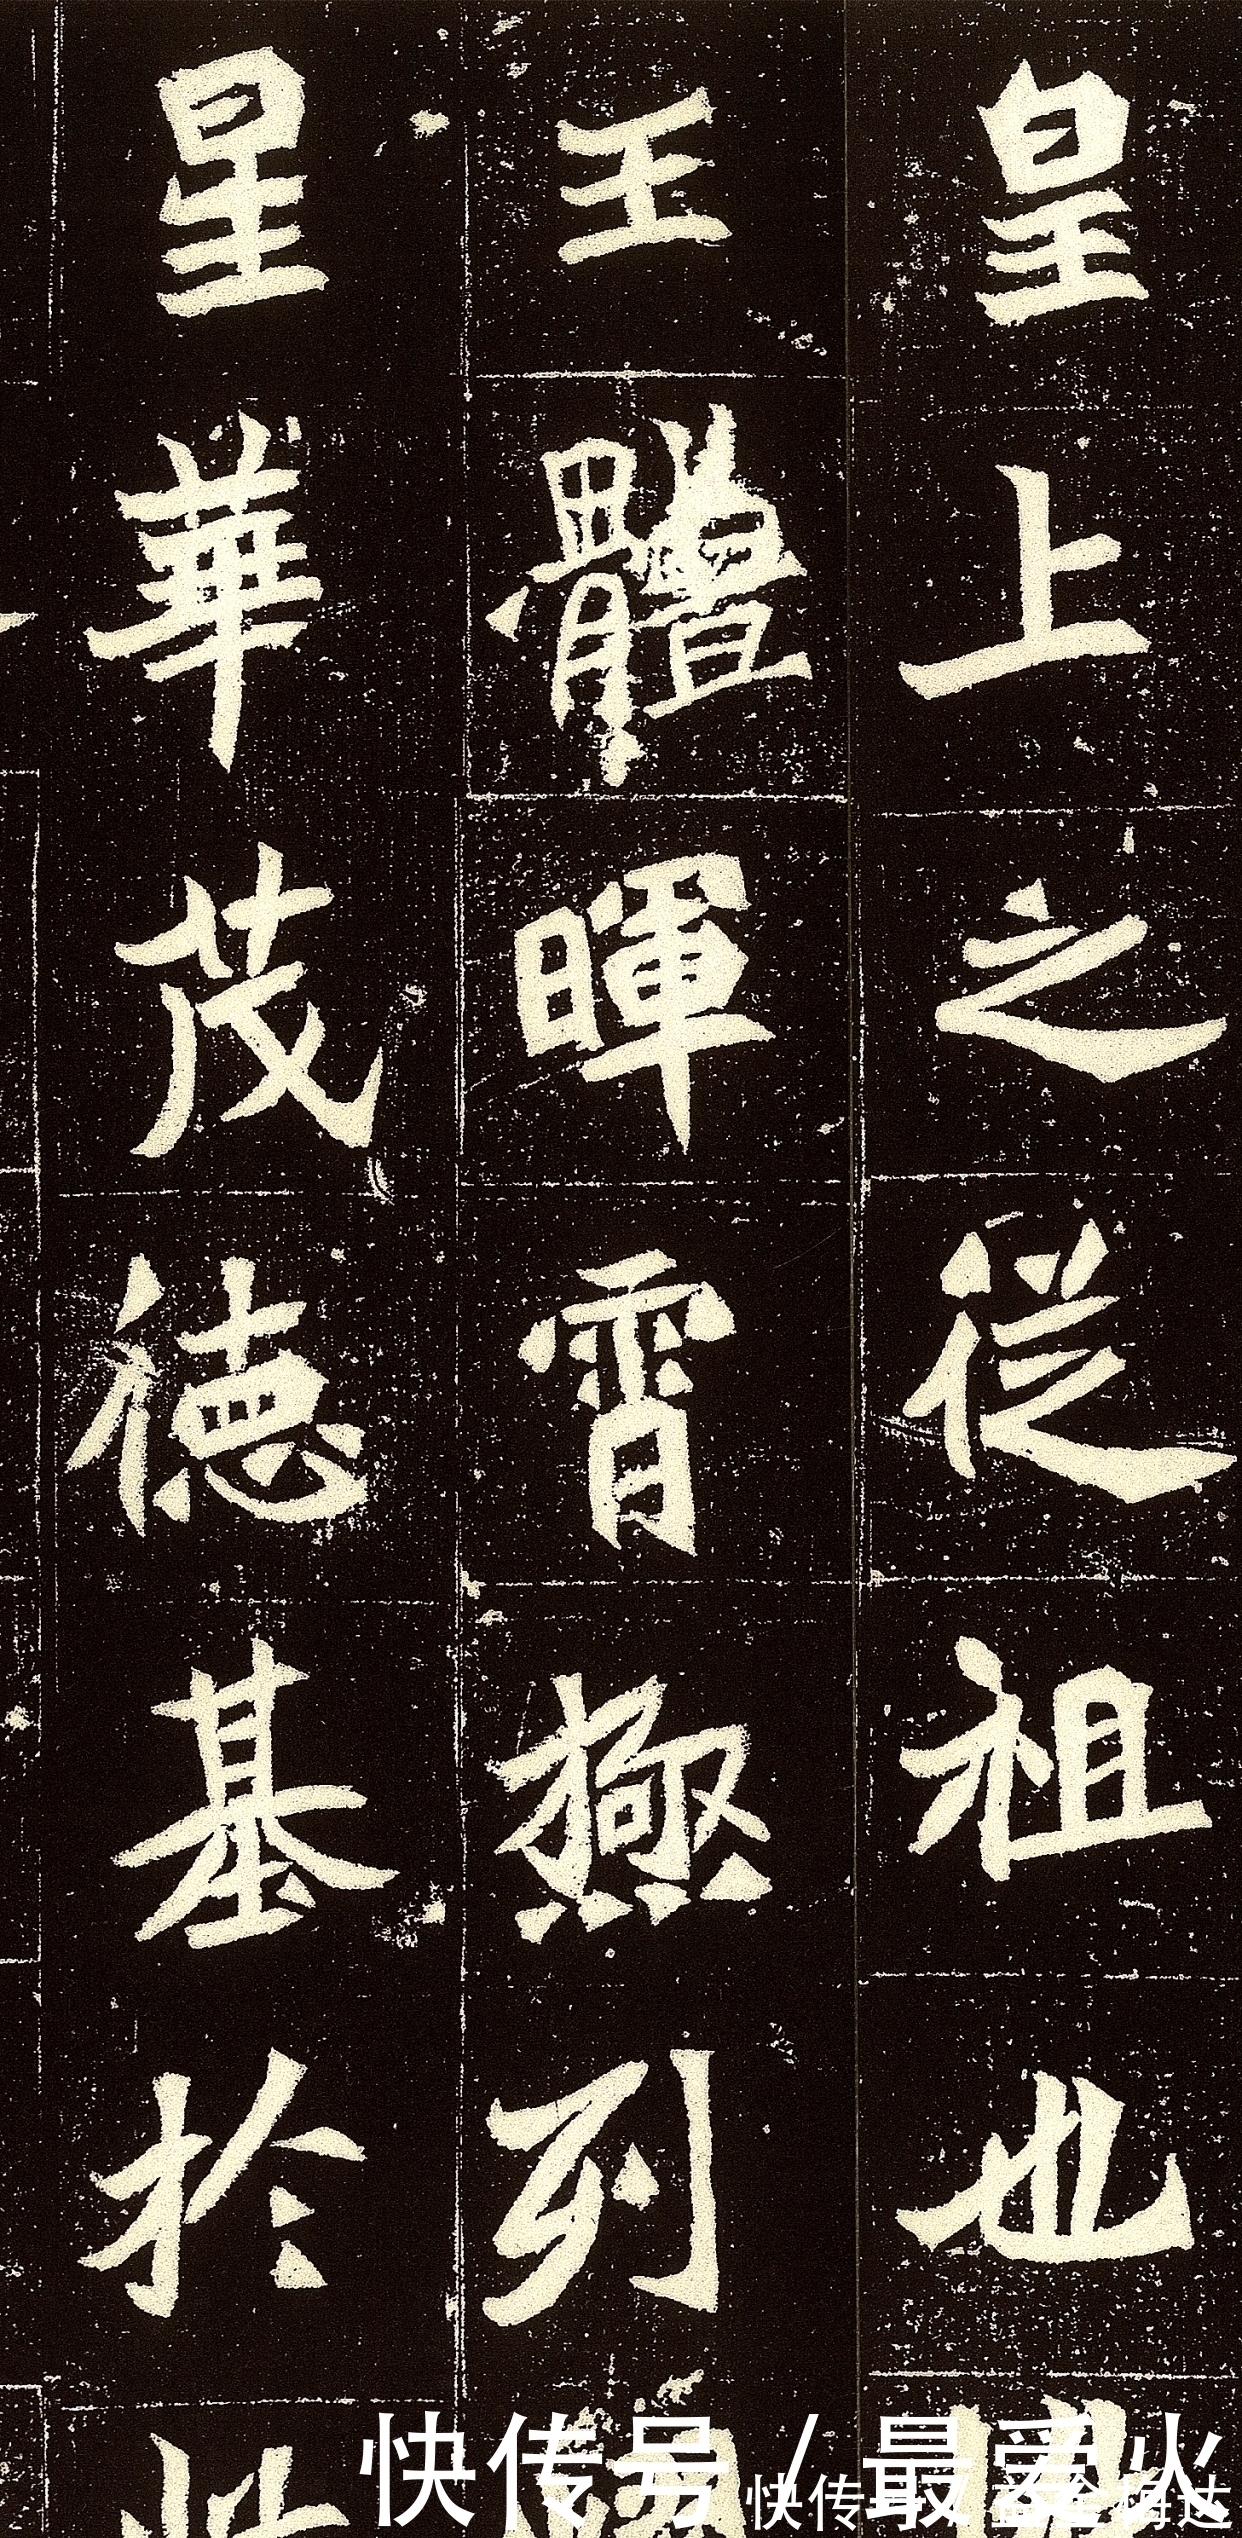 皇上之從祖也
王體暉霄極列
星華茂德基於
快传号/最爱火
快传